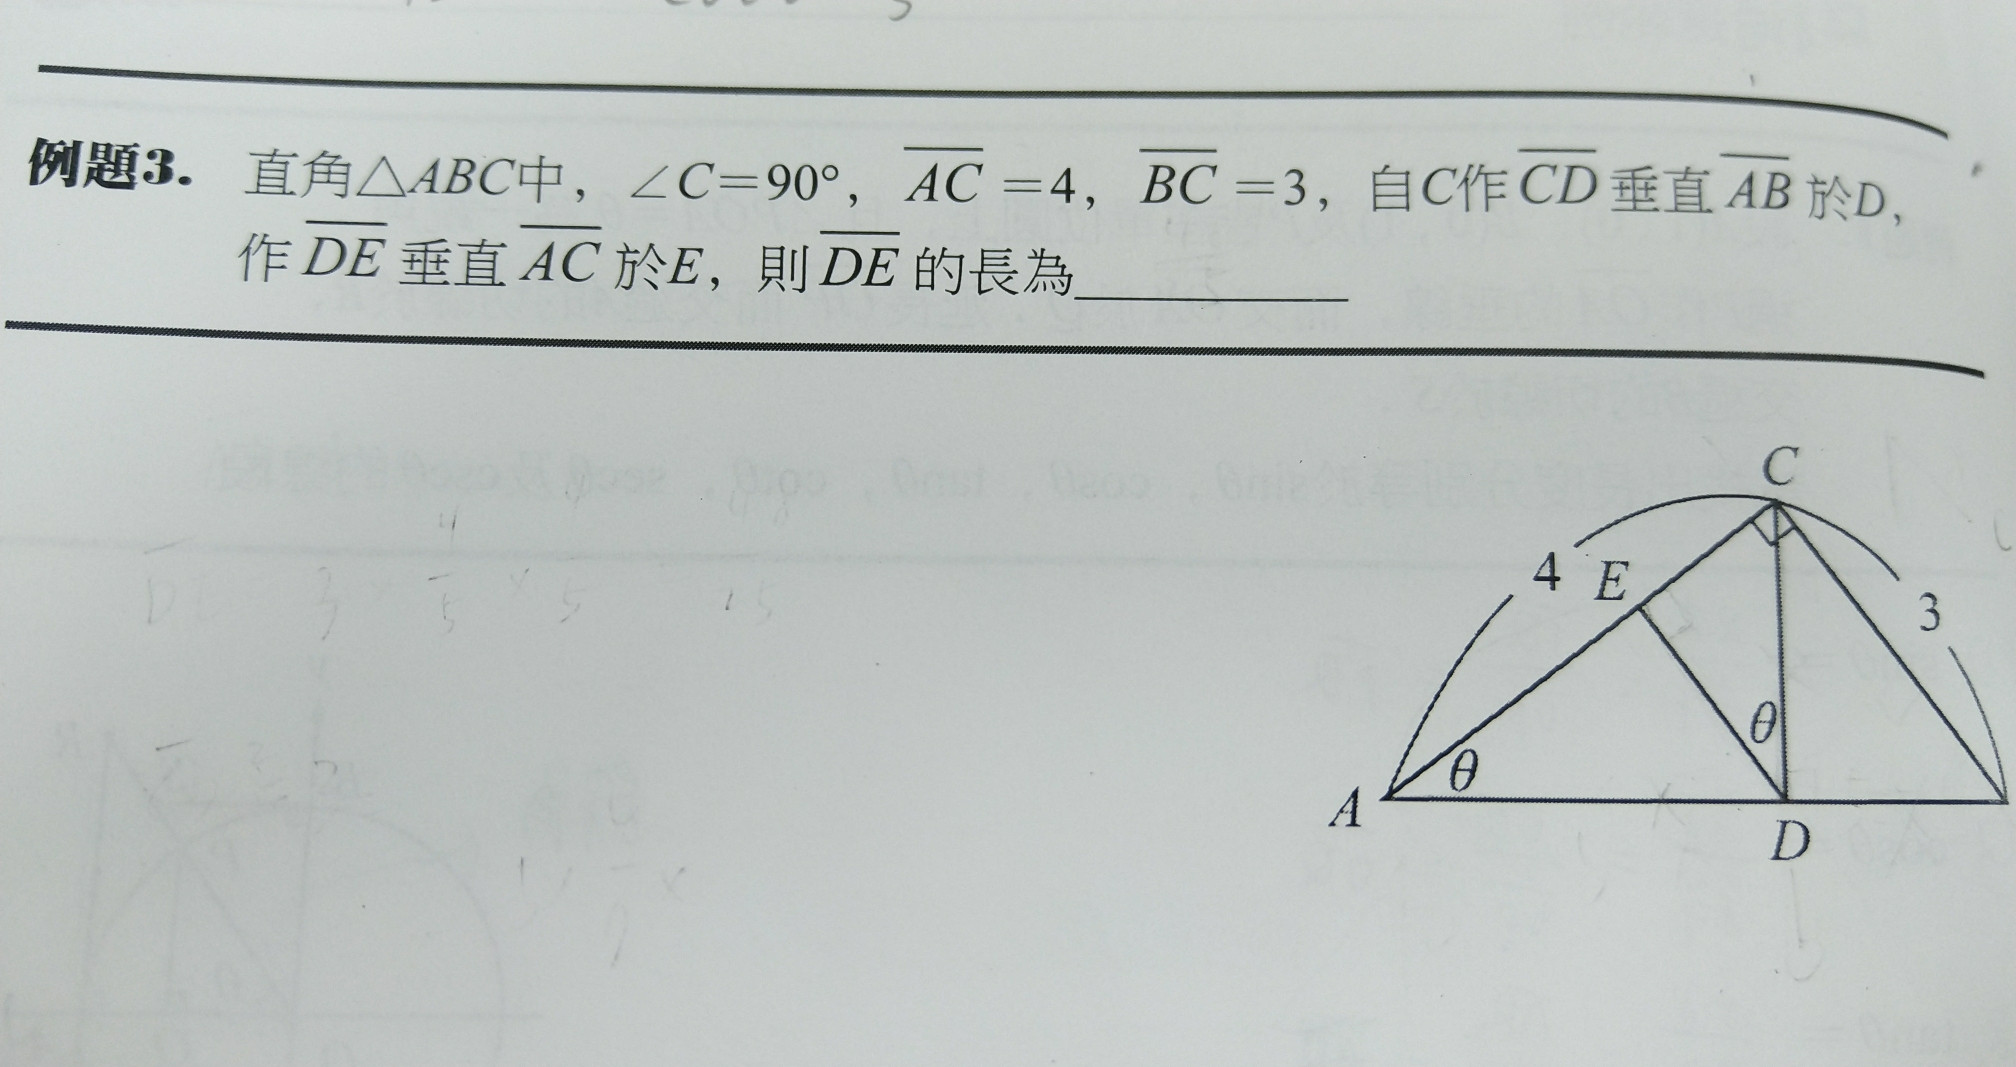 例題3. 直角△ABC中，∠C=90°，AC=4，BC=3，自C作CD垂直AB於D，
作DE垂直AC於E，則DE的長為__________
C
4 E
3
θ
θ
A
D